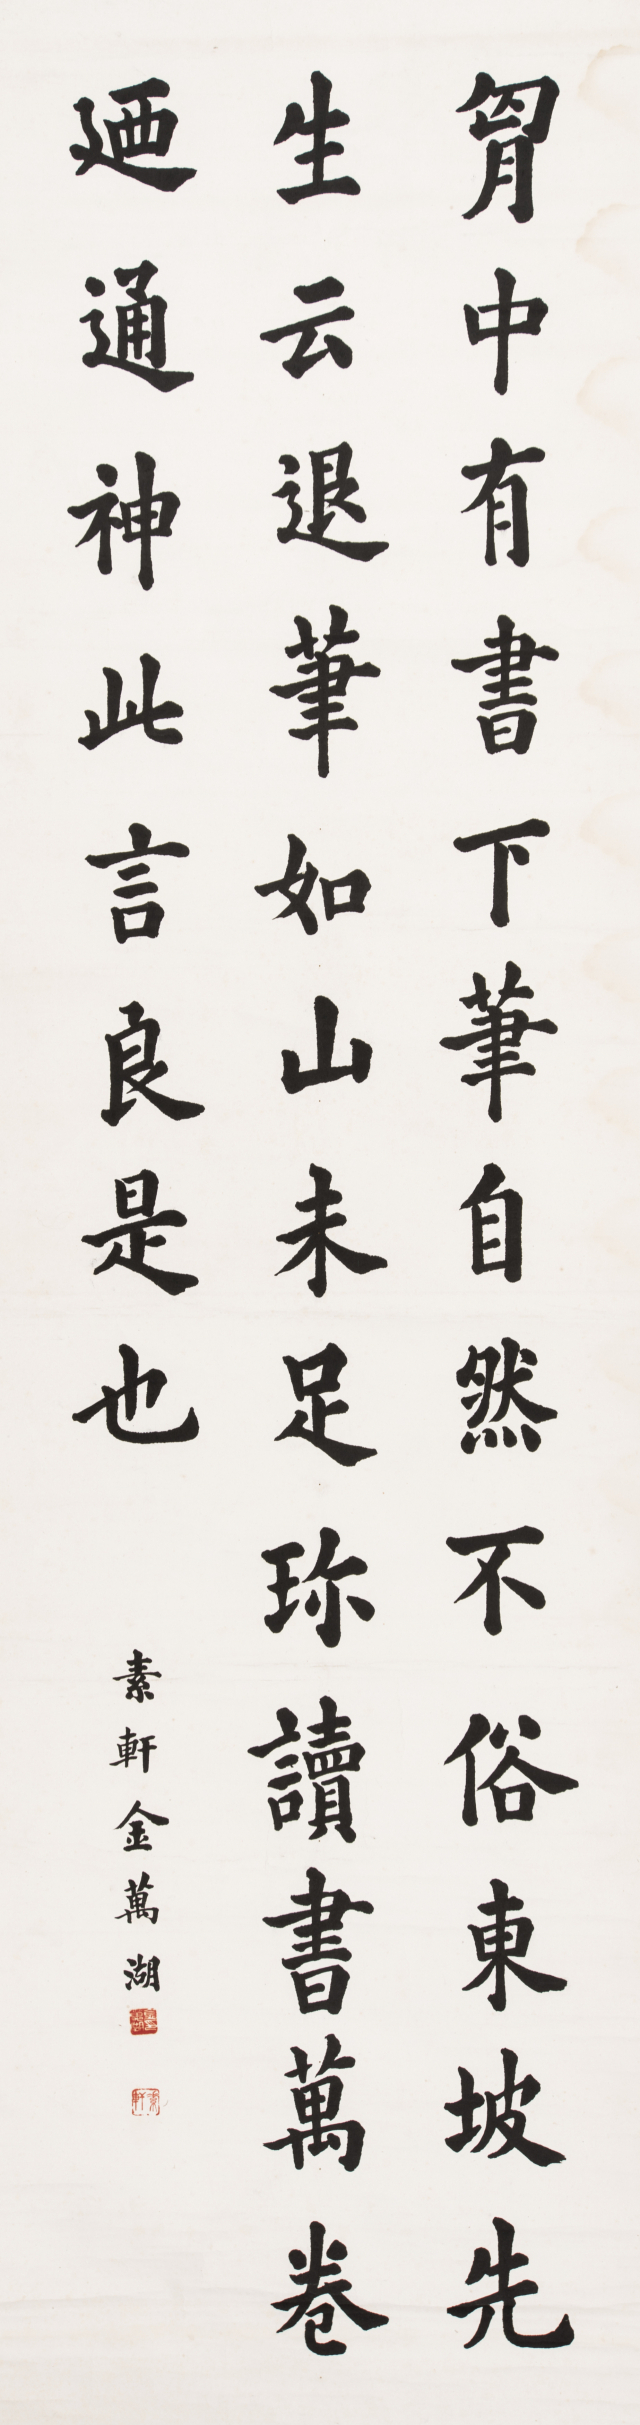 胷中有書下筆自然不俗東坡先
生云退筆如山未足珎讀書萬卷
廼通神此言良是也
素軒金萬湖